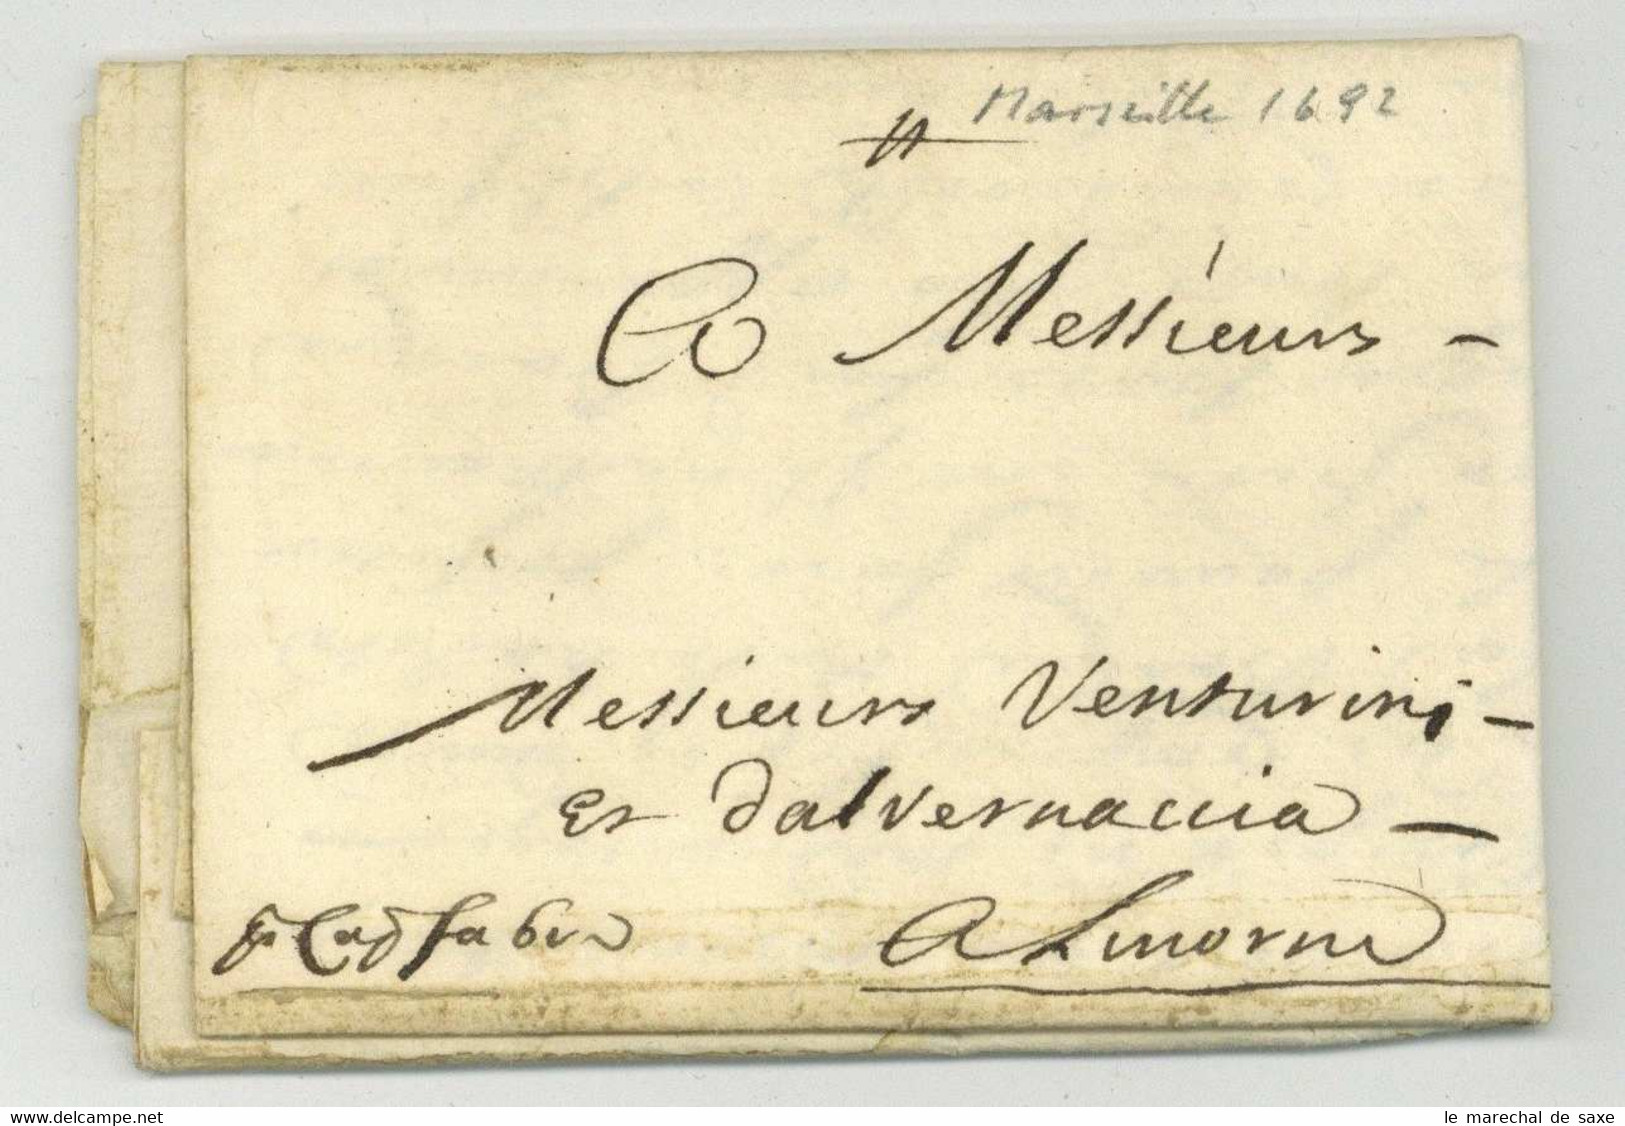 Marseille 1692
A Messieurs -
Messieurs Venturini -
Et dalvernaccia -
A Livorne
www.delcampe.net
le marechal de saxe